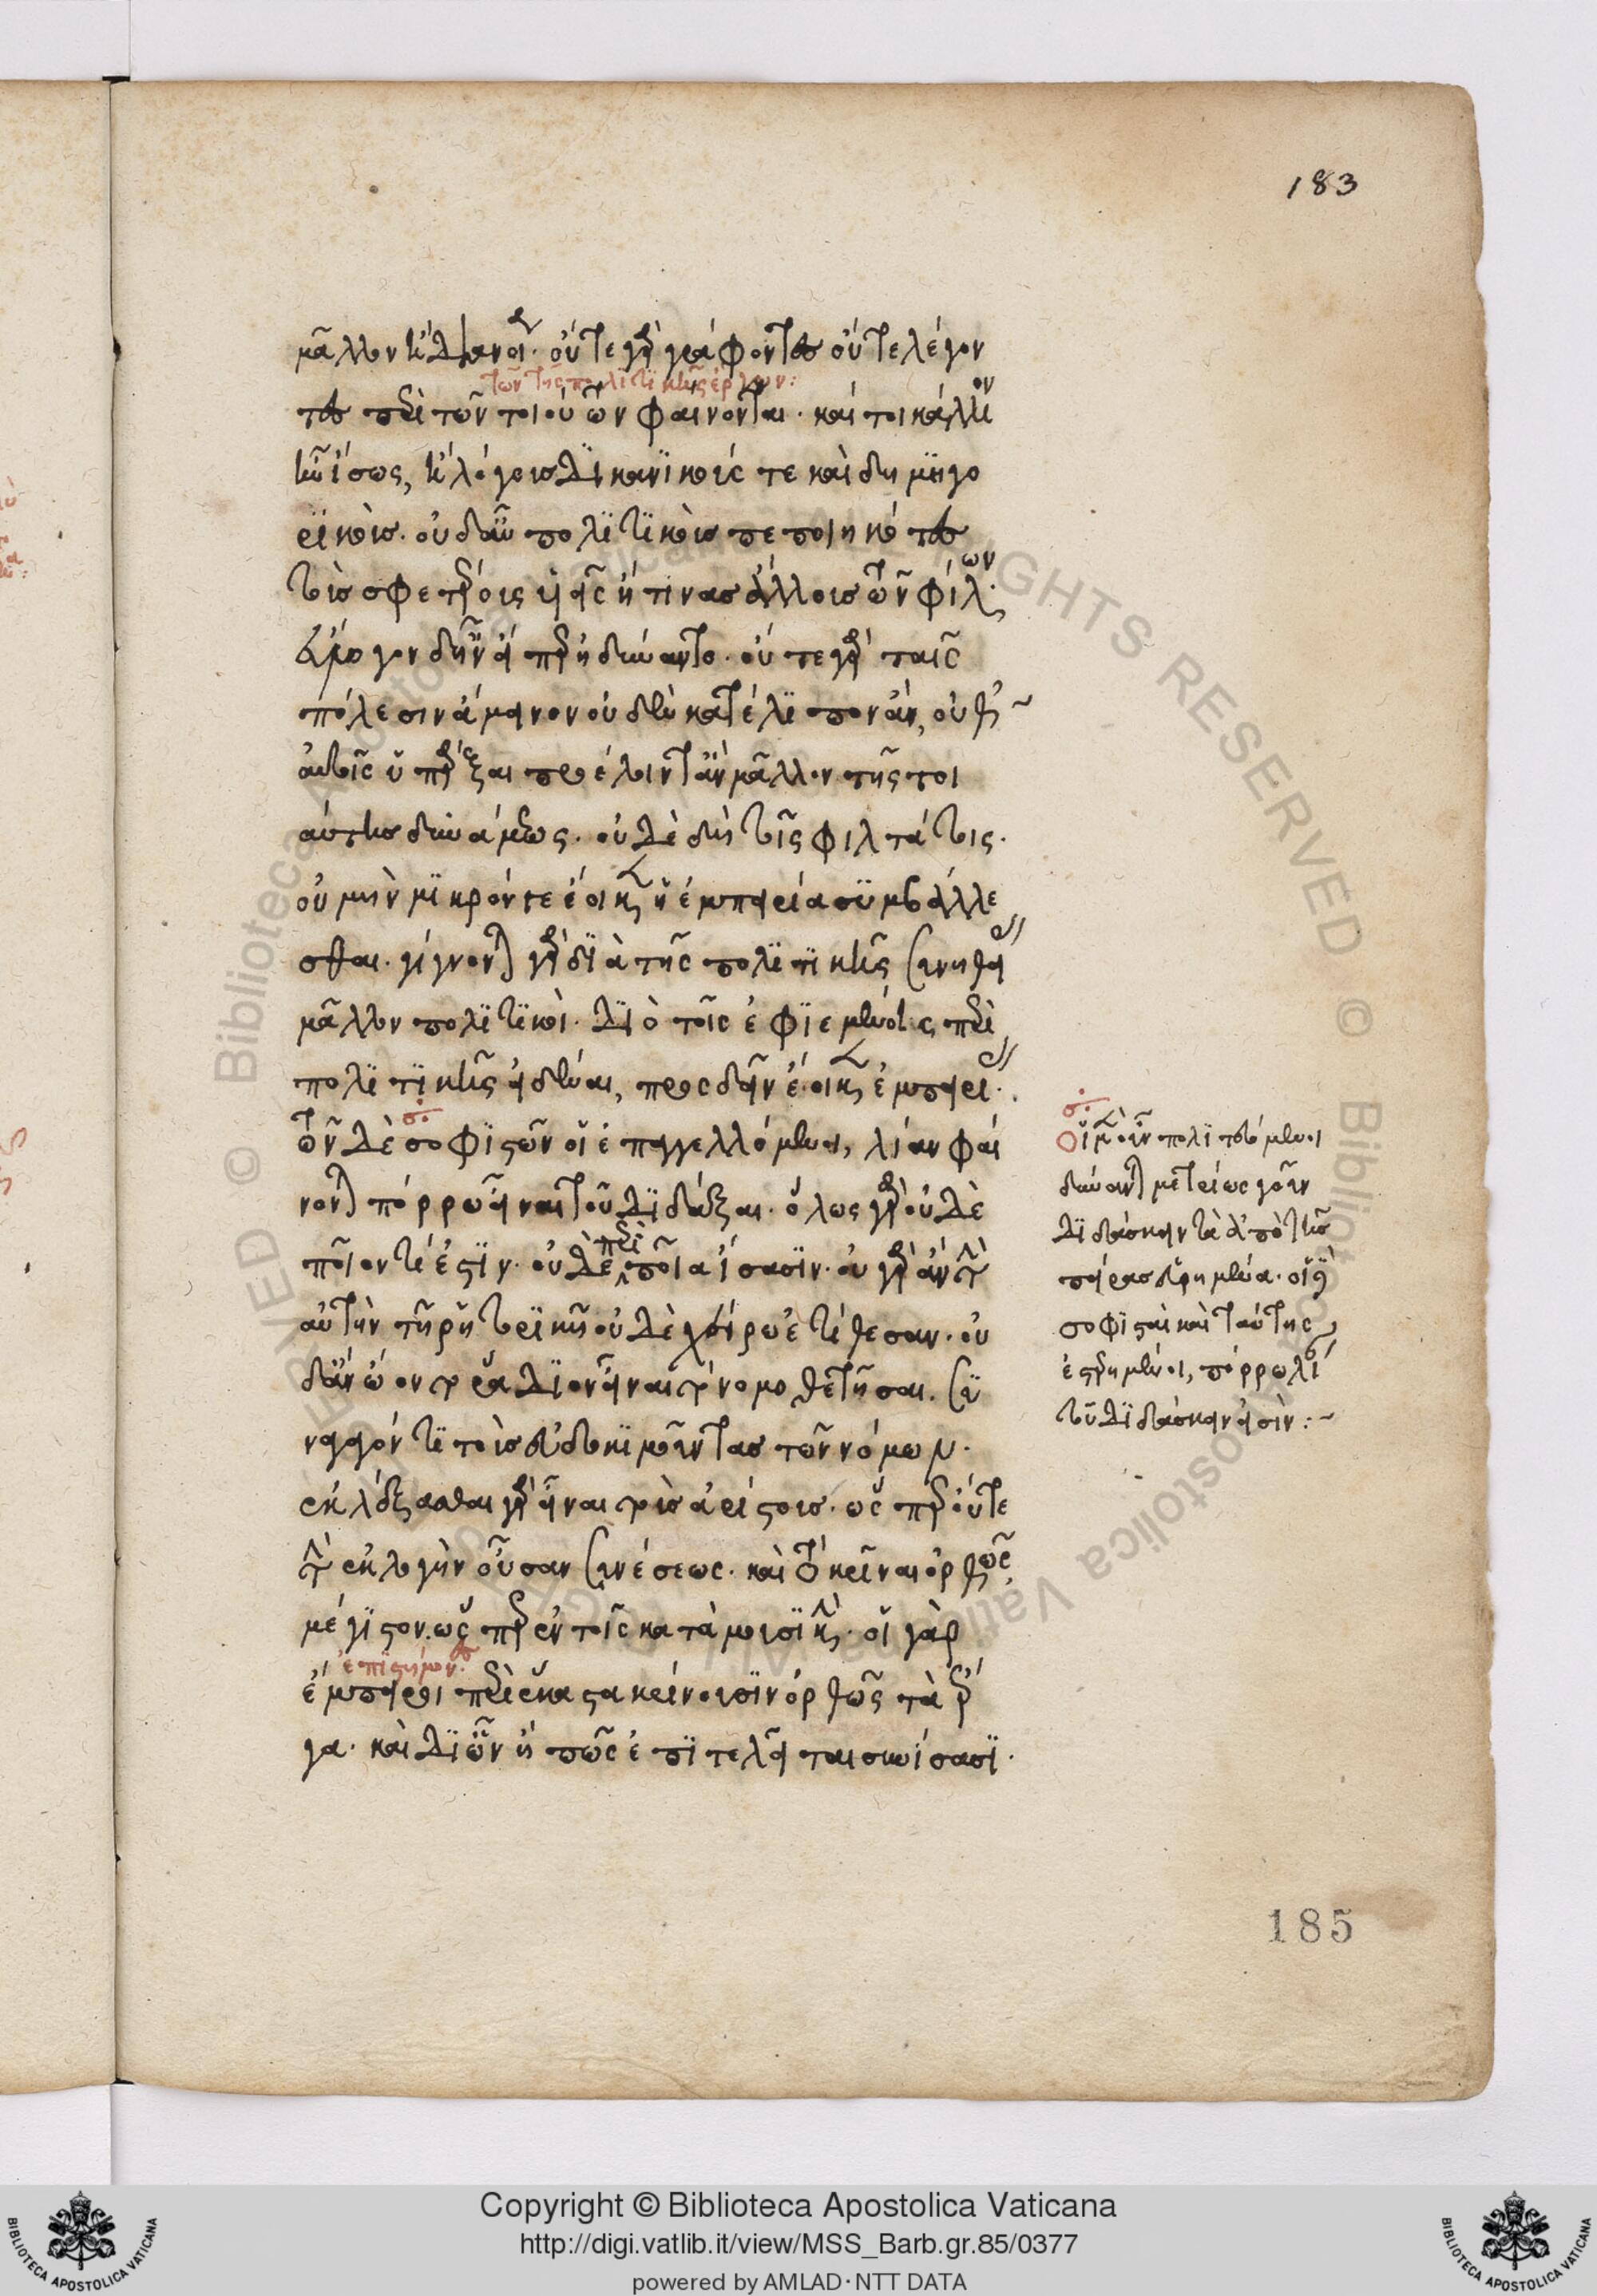 183
μᾶλλον ἢ διανοίᾳ. οὔτε γὰρ γράφοντες οὔτε λέγον
τῶν τῆς πολιτικῆς ἔργων:
τες περὶ τῶν τοιούτων φαίνονται. καί τοι κάλλιον
ἦν ἴσως, ἢ λόγους δικανικούς τε καὶ δημηγο
ρικούς. οὐδ' αὖ πολιτικοὺς πεποιηκότες
τοὺς σφετέρους υἱεῖς ἤ τινας ἄλλους τῶν φίλων.
εὔλογον δ' ἦν εἴπερ ἠδύναντο. οὔτε γὰρ ταῖς
πόλεσιν ἄμεινον οὐδὲν κατέλιπον ἄν, οὔθ'
αὑτοῖς ὑπάρξαι προέλοιντ' ἂν μᾶλλον τῆς τοι
αύτης δυνάμεως. οὐδὲ δὴ τοῖς φιλτάτοις.
οὐ μὴν μικρόν γε ἔοικεν ἡ ἐμπειρία συμβάλλε
σθαι. γίγνονται γὰρ διὰ τῆς πολιτικῆς συνηθείας
μᾶλλον πολιτικοί. διὸ τοῖς ἐφιεμένοις περὶ
πολιτικῆς εἰδέναι, προσδεῖν ἔοικεν ἐμπειρίας.
τῶν δὲ σοφιστῶν οἱ ἐπαγγελλόμενοι, λίαν φαί
νονται πόρρω εἶναι τοῦ διδάξαι. ὅλως γὰρ οὐδὲ
ποῖόν τι ἐστιν. οὐδὲ περὶ ποῖα ἴσασιν. οὐ γὰρ ἂν τὴν
αὐτὴν τῇ ῥητορικῇ οὐδὲ χείρω ἐτίθεσαν. οὐ
δ' ἂν ᾤοντο ῥᾴδιον εἶναι τὸ νομοθετῆσαι. συ
ναγαγόντι τοὺς εὐδοκιμοῦντας τῶν νόμων.
ἐκλέξασθαι γὰρ εἶναι τοὺς ἀρίστους. ὥσπερ οὔτε
τὴν ἐκλογὴν οὖσαν συνέσεως. καὶ τὸ κρῖναι ὀρθῶς,
μέγιστον. ὥσπερ ἐν τοῖς κατὰ μουσικήν. οἱ γὰρ
ἐπιστήμονες
ἔμπειροι περὶ ἕκαστα κρίνουσιν ὀρθῶς τὰ ἔρ
γα. καὶ δι' ὧν ἢ πῶς ἐπιτελεῖται συνίασι.
οἱ μὲν οὖν πολιτευόμενοι
δύνανται μετρίως γοῦν
διδάσκειν τὰ ἀπὸ τῆς
πείρας εὑρημένα. οἱ δὲ
σοφισταὶ καὶ ταύτης
ἐστερημένοι, πόρρω λίαν
τοῦ διδάσκειν εἰσίν:~
185
Copyright © Biblioteca Apostolica Vaticana
http://digi.vatlib.it/view/MSS_Barb.gr.85/0377
powered by AMLAD·NTT DATA